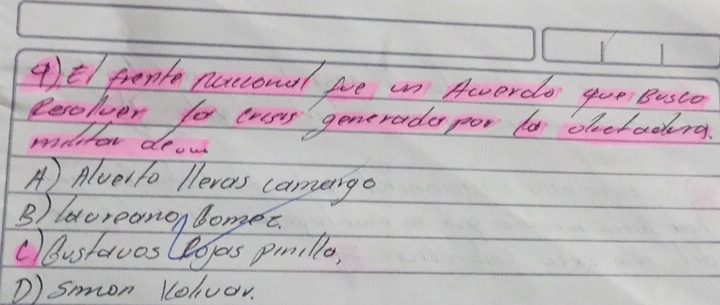 9) El frente nacional fue un Acuerdo que Busco
Resolver la crisis generada por la dictadura.
militar de...
A) Alverto lleras camargo
B) laureano Gomez.
C) Gustavos Rojas pinilla,
D) Simon Volivar.